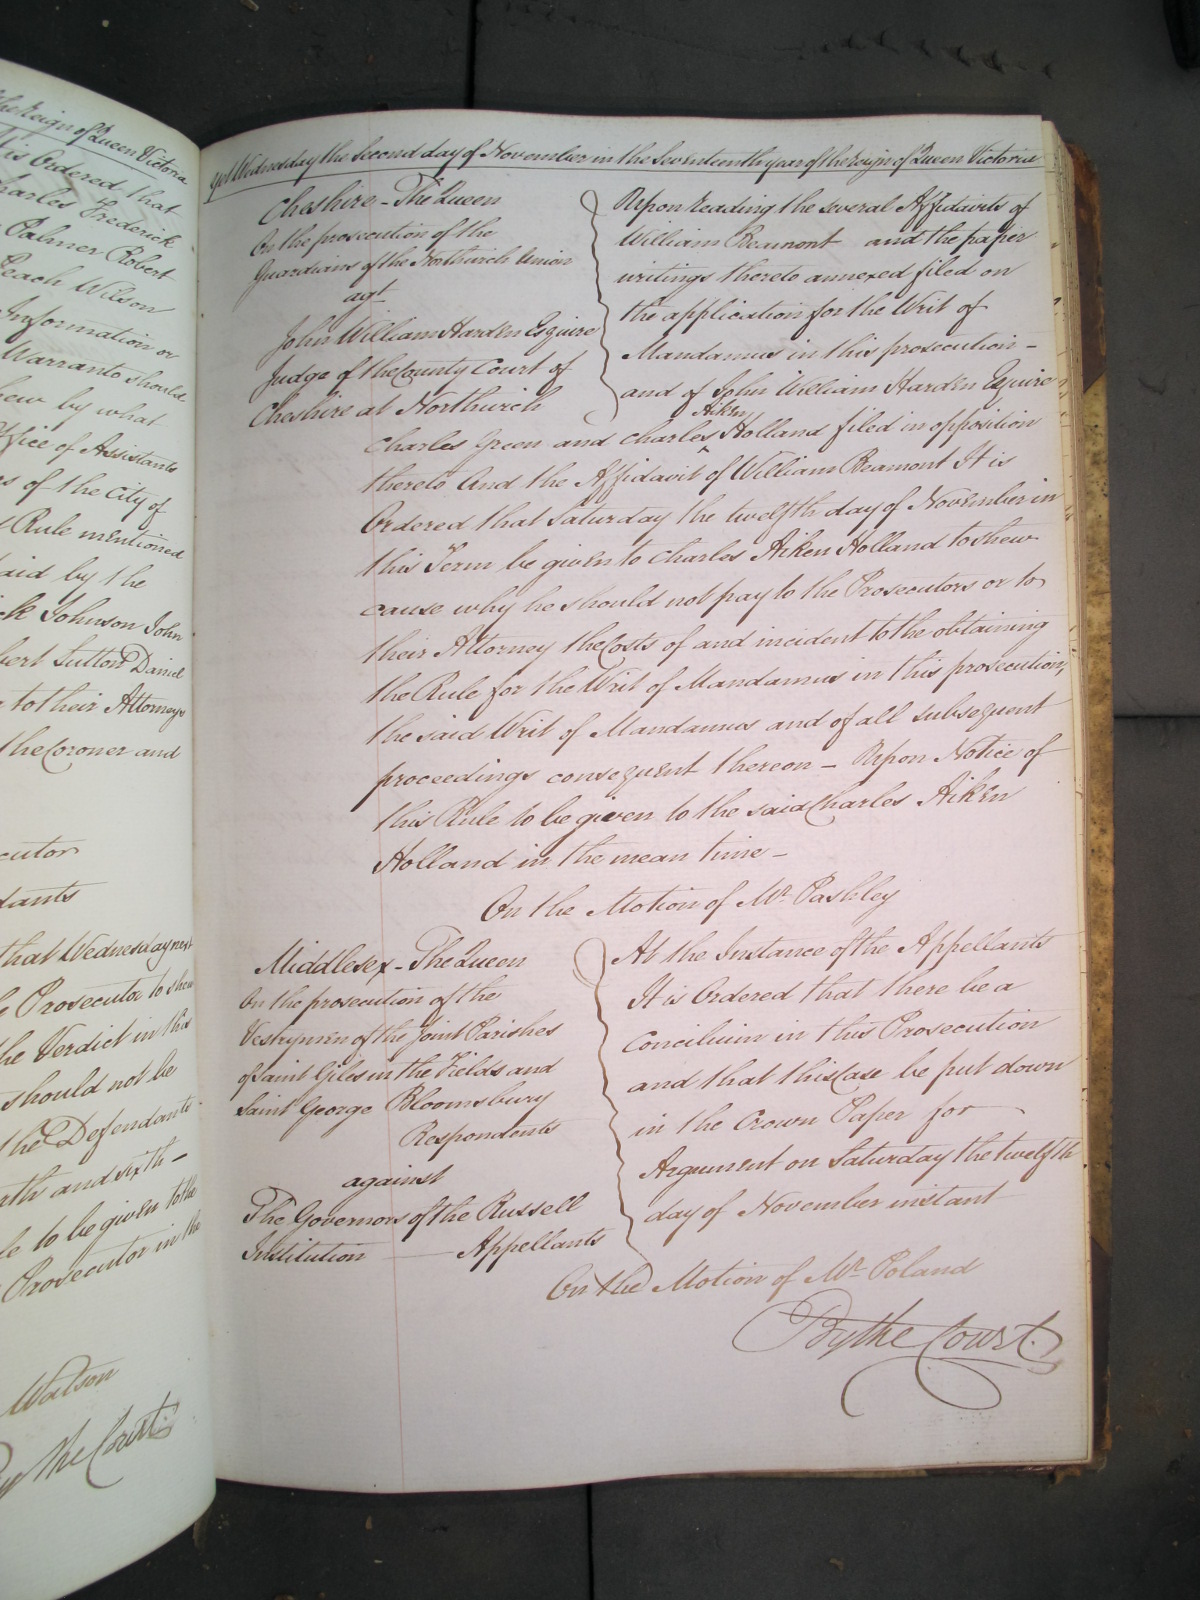 the Reign of Queen Victoria
is Ordered that
harles Frederick
Palmer Robert
Leach Wilson
Information or
Warranto should
hew by what
ffice of Assistants
s of the City of
Rule mentioned
aid by the
ck Johnson John
bert Sutton Daniel
to their Attorneys
the Coroner and
cutor
dants
that Wednesday next
e Prosecutor to shew
the Verdict in this
should not be
the Defendants
and sixth –
le to be given to the
Prosecutor in the
Watson
By the Court
Yet Wednesday the Second day of November in the Seventeenth year of the Reign of Queen Victoria
Cheshire – The Queen
On the prosecution of the
Guardians of the Northwich Union
agt
John William Harden Esquire
Judge of the County Court of
Cheshire at Northwich
Upon reading the several Affidavits of
William Beamont and the paper
writings thereto annexed filed on
the application for the Writ of
Mandamus in this prosecution –
and of John William Harden Esquire
Charles Green and Charles Aiken Holland filed in opposition
thereto And the Affidavit of William Beamont It is
Ordered that Saturday the twelfth day of November in
this Term be given to Charles Aiken Holland to shew
cause why he should not pay to the Prosecutors or to
their Attorney the Costs of and incident to the obtaining
the Rule for the Writ of Mandamus in this prosecution,
the said Writ of Mandamus and of all subsequent
proceedings consequent thereon – Upon Notice of
this Rule to be given to the said Charles Aiken
Holland in the mean time –
On the Motion of Mr. Pashley
Middlesex – The Queen
On the prosecution of the
Vestrymen of the Joint Parishes
of Saint Giles in the Fields and
Saint George Bloomsbury
Respondents
against
The Governors of the Russell
Institution — Appellants
At the Instance of the Appellants
It is Ordered that there be a
Concilium in this Prosecution
and that this Case be put down
in the Crown Paper for
Argument on Saturday the twelfth
day of November instant
On the Motion of Mr. Poland
By the Court.